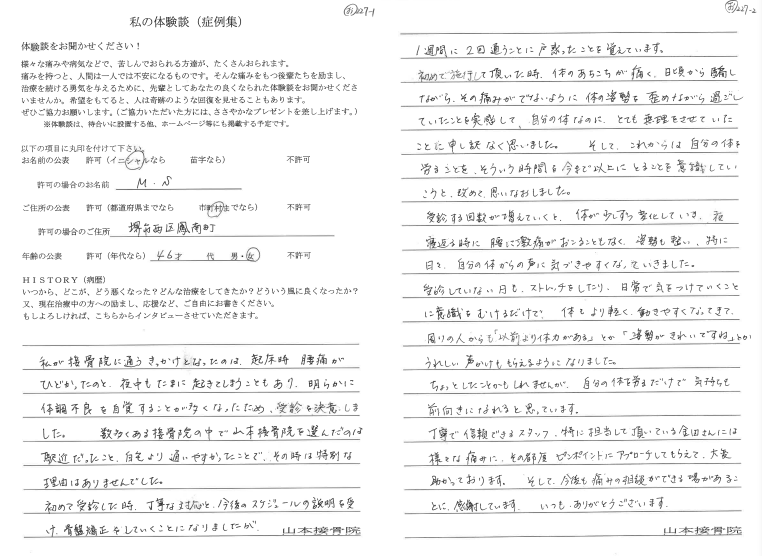 227-1
私の体験談(症例集)
体験談をお聞かせください!
様々な痛みや病気などで、苦しんでおられる方達が、たくさんおられます。
痛みを持つと、人間は一人では不安になるものです。そんな痛みをもつ後輩たちを励まし、
治療を続ける勇気を与えるために、先輩としてあなたの良くなられた体験談をお聞かせくださ
いませんか。希望をもてると、人は奇跡のような回復を見せることもあります。
ぜひご協力お願いします。(ご協力いただいた方には、ささやかなプレゼントを差し上げます。)
※体験談は、待合いに設置する他、ホームページ等にも掲載する予定です。
以下の項目に丸印を付けて下さい。
お名前の公表 許可(イニシャルなら 苗字なら) 不許可
許可の場合のお名前 M.N
ご住所の公表 許可(都道府県までなら 市町村までなら) 不許可
許可の場合のご住所 堺市西区鳳南町
年齢の公表 許可(年代なら) 46才 代 男・女 不許可
HISTORY(病歴)
いつから、どこが、どう悪くなった?どんな治療をしてきたか?どういう風に良くなったか?
又、現在治療中の方への励まし、応援など、ご自由にお書きください。
もしよろしければ、こちらからインタビューさせていただきます。
私が接骨院に通うきっかけとなったのは、起床時 腰痛が
ひどかったのと、夜中もたまに起きてしまうこともあり、明らかに
体調不良を自覚することが多くなったため、受診を決意しま
した。 数多くある接骨院の中で山本接骨院を選んだのは
駅近だったこと、自宅より通いやすかったことで、その時は特別な
理由はありませんでした。
初めて受診した時、丁寧な対応と、今後のスケジュールの説明を受
け、骨盤矯正をしていくことになりましたが、
山本接骨院
227-2
1週間に2回通うことに戸惑ったことを覚えています。
初めて施術して頂いた時、体のあちこちが痛く、日頃から騙し
ながら、その痛みがでないように体の姿勢を歪めながら過ごし
ていたことを実感して、自分の体なのに、とても無理をさせていた
ことに申し訳なく思いました。 そして、これからは自分の体を
労ることを、そういう時間を今まで以上にとることを意識してい
こうと、改めて思いなおしました。
受診する回数が増えていくと、体が少しずつ変化していき、夜
寝返る時に腰に激痛がおこることもなく、姿勢も整い、特に
日々、自分の体からの声に気づきやすくなっていきました。
受診していない日も、ストレッチをしたり、日常で気をつけていくこと
に意識をむけるだけで、体もより軽く、動きやすくなってきて、
周りの人からも「以前より体力がある」とか「姿勢がきれいですね」とか
うれしい声かけももらえるようになりました。
ちょっとしたことかもしれませんが、自分の体を労るだけで気持ちも
前向きになれると思っています。
丁寧で信頼できるスタッフ、特に担当して頂いている金田さんには
様々な痛みに、その都度ピンポイントにアプローチしてもらえて、大変
助かっております。 そして、今後も痛みの相談ができる場があるこ
とに、感謝しています。 いつも、ありがとうございます。
山本接骨院